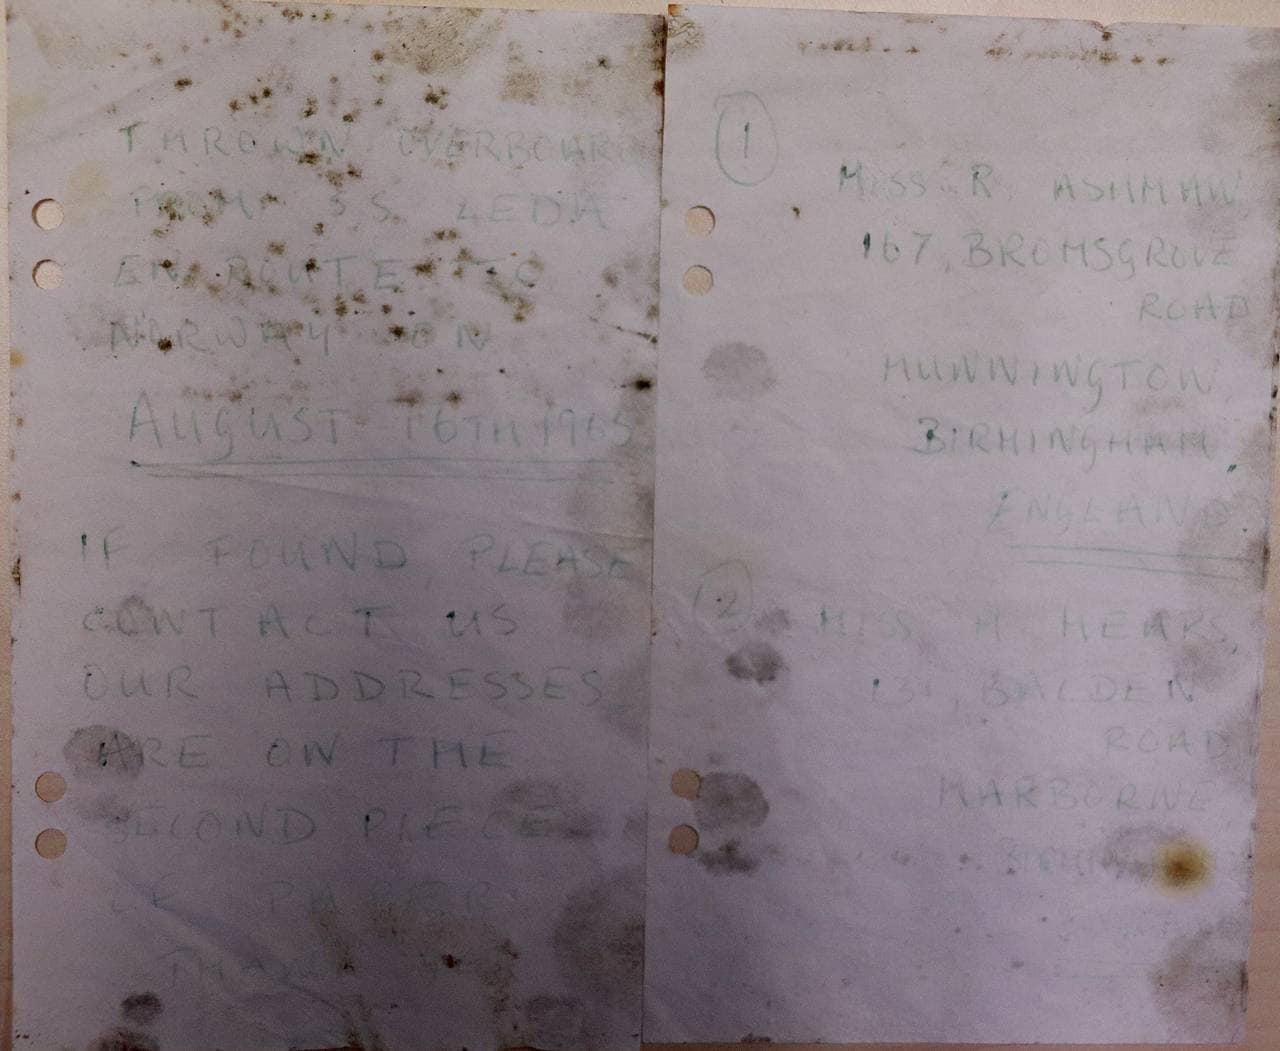 THROWN OVERBOARD
FROM S.S. LEDA
EN ROUTE TO
NORWAY ON
AUGUST 16TH 1965
IF FOUND PLEASE
CONTACT US
OUR ADDRESSES
ARE ON THE
SECOND PIECE
OF PAPER
THANK
1
MISS R. ASHMAN
167, BROMSGROVE
ROAD
HUNNINGTON
BIRMINGHAM,
ENGLAND
2
MISS M MEARS,
BALDEN
ROAD
HARBORNE